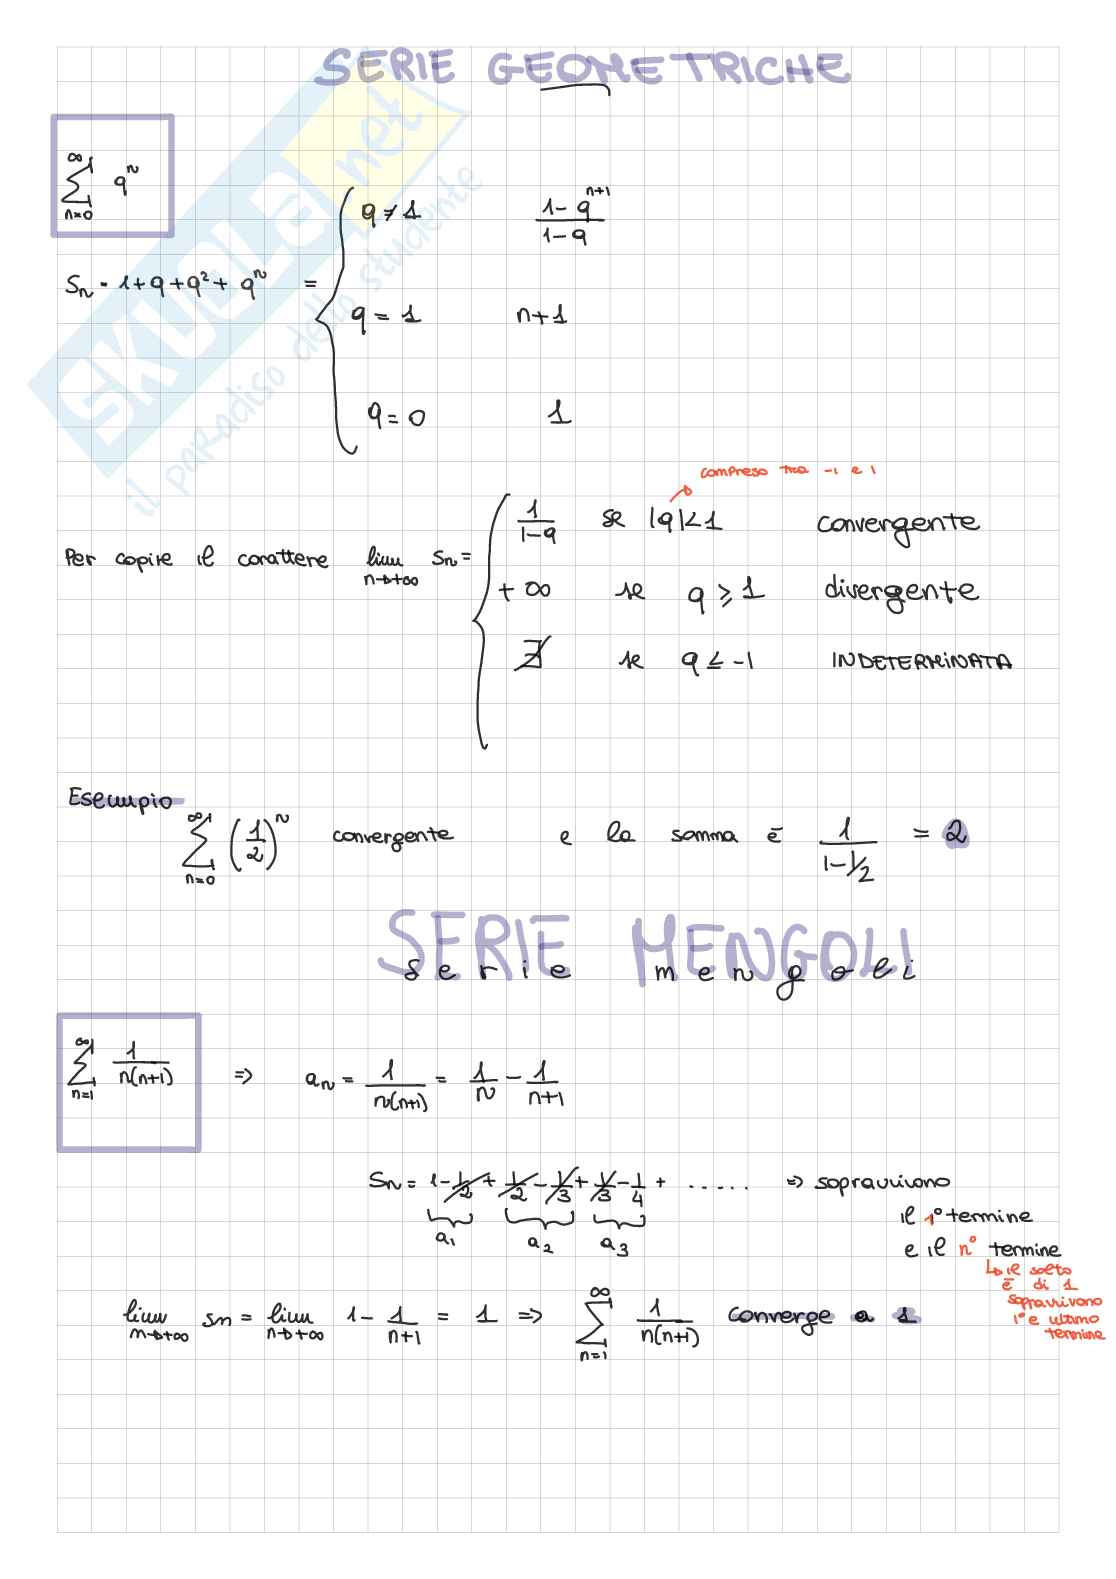 SERIE GEOMETRICHE
∞ ∑ n=0 qⁿ
Sn = 1+q+q²+ qⁿ = { q ≠ 1 (1-q^(n+1))/(1-q)
q = 1 n+1
q = 0 1
compreso tra -1 e 1
Per capire il carattere lim n→+∞ Sn = { 1/(1-q) se |q|<1 convergente
+∞ se q ⩾ 1 divergente
∄ se q ≤ -1 INDETERMINATA
Esempio
∞ ∑ n=0 (1/2)ⁿ convergente e la somma è 1/(1-1/2) = 2
SERIE MENGOLI
serie mengoli
∞ ∑ n=1 1/(n(n+1)) ⇒ an = 1/(n(n+1)) = 1/n - 1/(n+1)
Sn = 1-1/2 + 1/2 - 1/3 + 1/3 - 1/4 + ...... ⇒ sopravvivono
a1 a2 a3
il 1° termine
e il n° termine
↳ il salto
è di 1
sopravvivono
1° e ultimo
termine
lim n→+∞ Sn = lim n→+∞ 1 - 1/(n+1) = 1 ⇒ ∞ ∑ n=1 1/(n(n+1)) converge a 1
SKUOLA.net
il paradiso dello studente